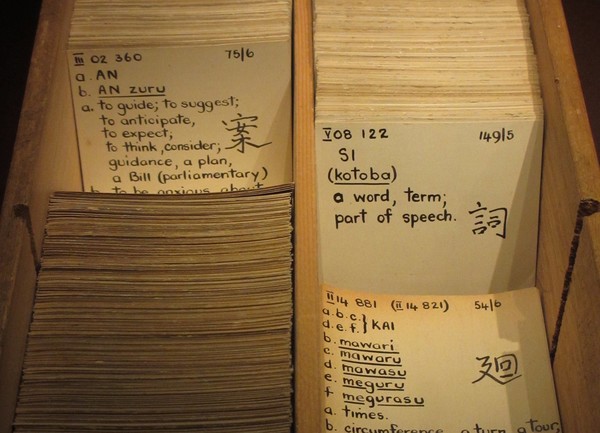 III 02 360 75/6
a. AN
b. AN zuru
a. to guide; to suggest;
to anticipate,
to expect;
to think, consider; 案
guidance, a plan,
a Bill (parliamentary)
b. to be anxious about
V 08 122 149/5
SI
(kotoba)
a word, term;
part of speech. 詞
II 14 881 (II 14 821) 54/6
a. b. c. }
d. e. f. } KAI
b. mawari
c. mawaru
d. mawasu 廻
e. meguru
f. megurasu
a. times.
b. circumference, a turn, a tour,